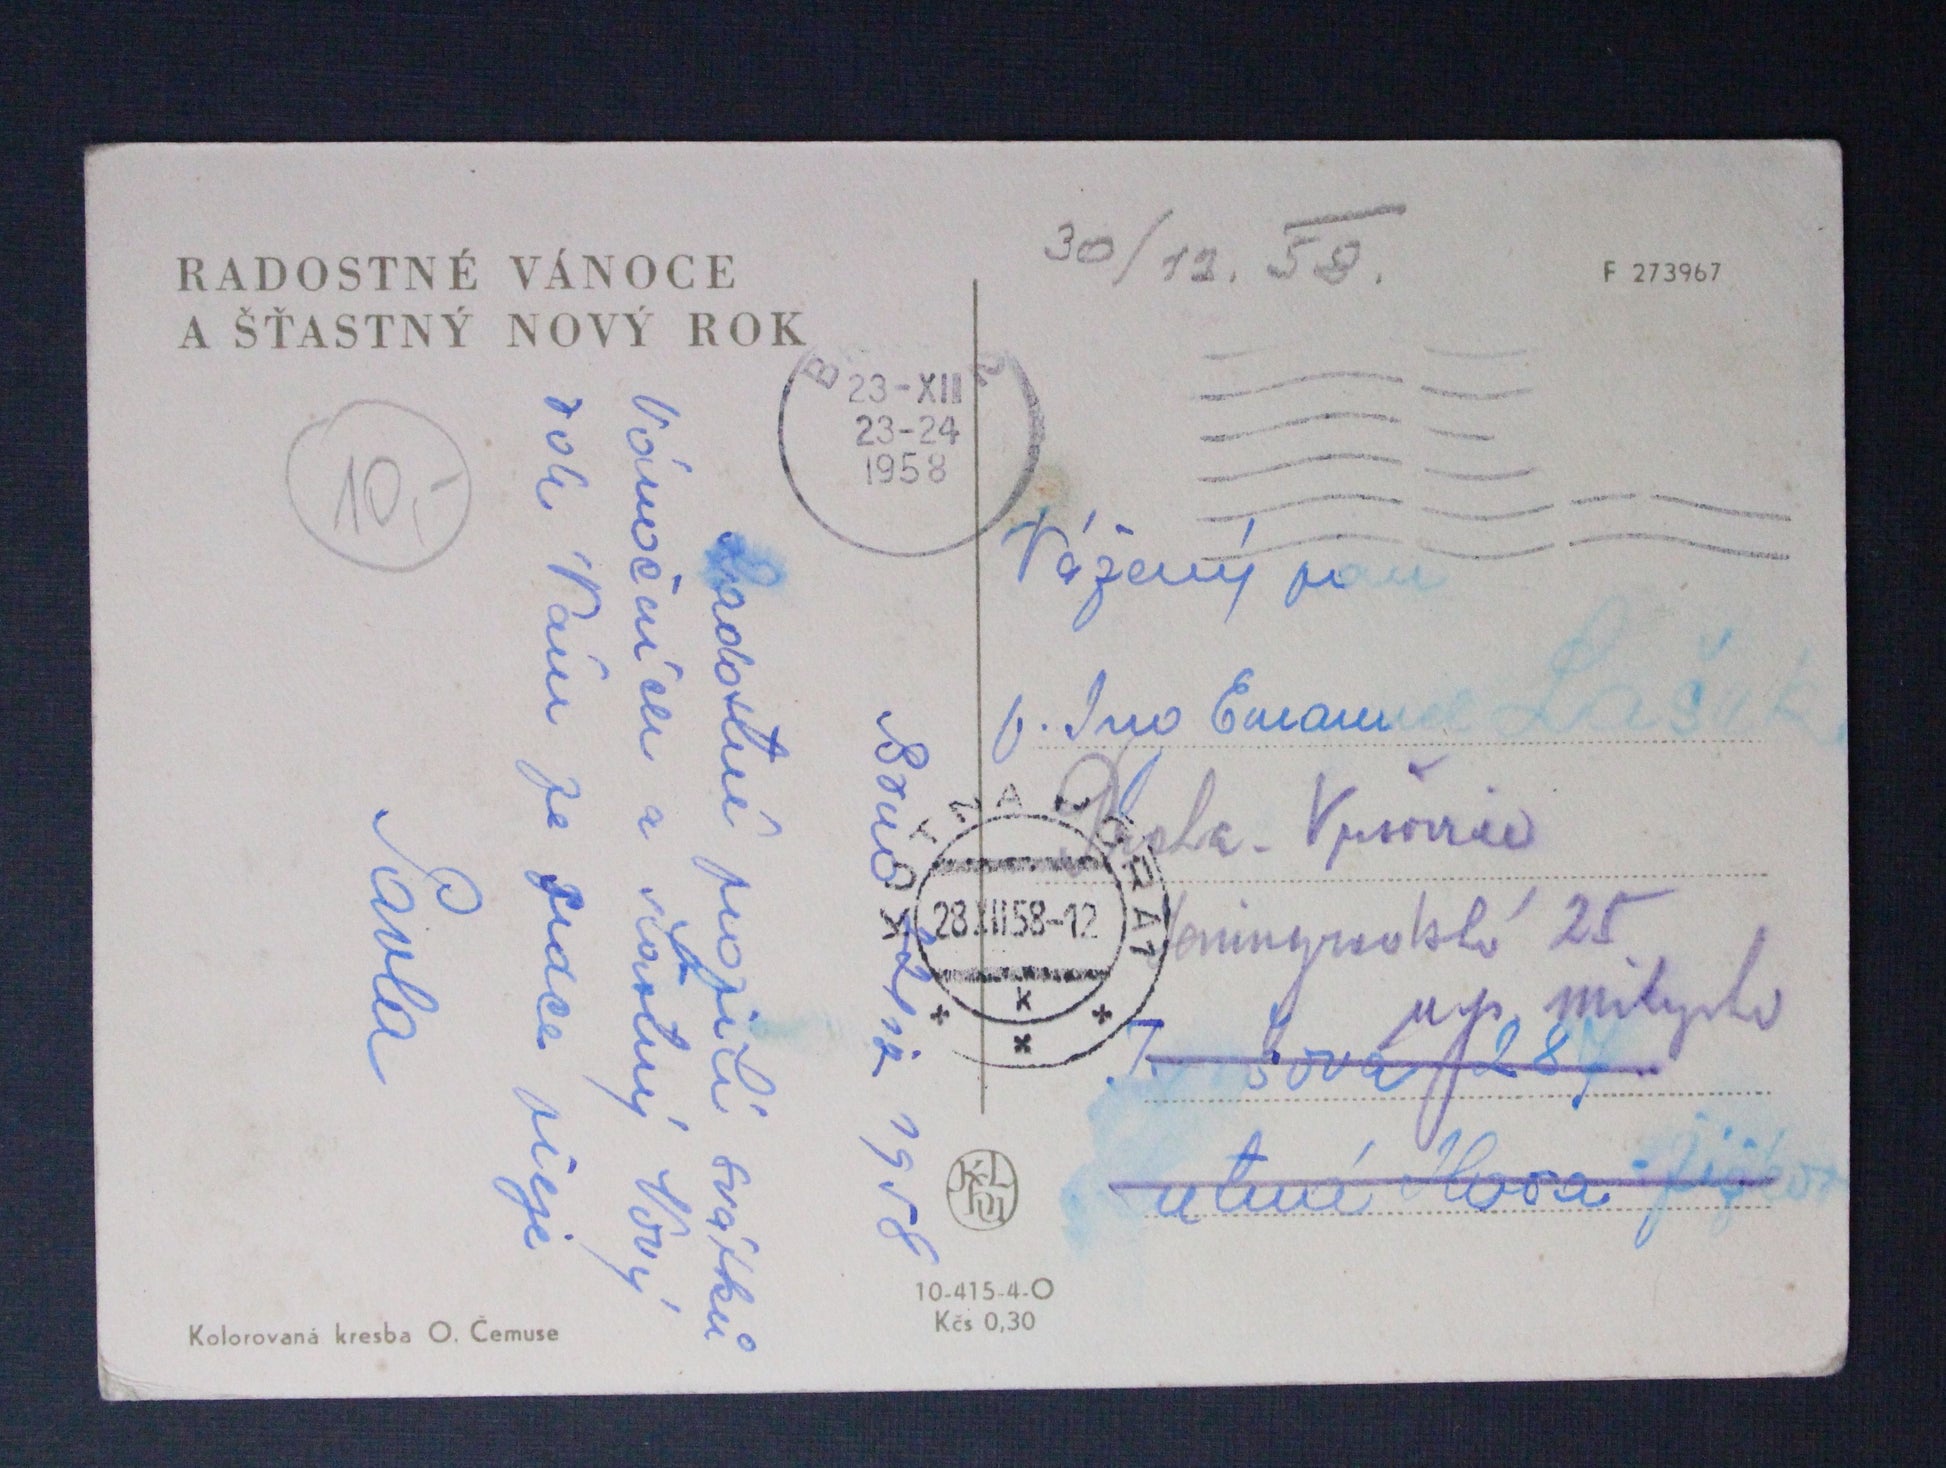 RADOSTNÉ VÁNOCE
A ŠŤASTNÝ NOVÝ ROK
30/12. 58.
F 273967
B 2
23-XII
23-24
1958
10,-
Brno 22/12 1958
radostné prožití svátků
Vánočních a šťastný Nový
rok Vám ze srdce přeje
Pavla
Vážený pan
p. Ivo Emanuel
Praha - Vysočany
Leningradská 25
28.XII.58-12
k
287
Kutná Hora - Žižkov
10-415-4-O
Kčs 0,30
Kolorovaná kresba O. Čemuse